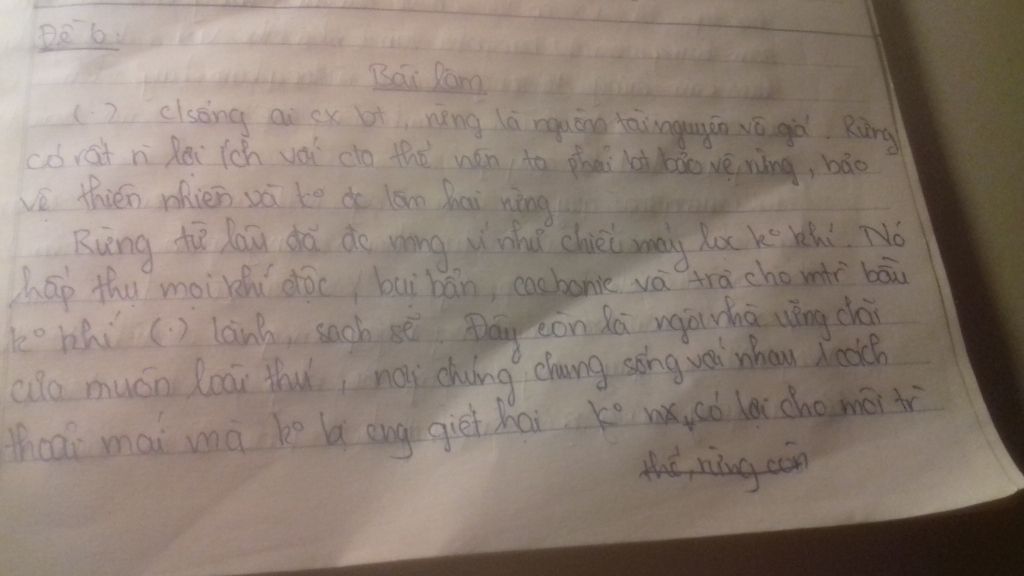 Đề 6:
Bài làm
(.) c/sống ai cx bt, rừng là nguồn tài nguyên vô giá. Rừng
có rất n lợi ích với cta thế nên ta phải bt bảo vệ rừng, bảo
vệ thiên nhiên và ko đc làm hại rừng
Rừng từ lâu đã đc mng ví như chiếc máy lọc ko khí. Nó
hấp thụ mọi khí độc, bụi bẩn, cacbonic và trả cho mtr bầu
ko khí (.) lành, sạch sẽ. Đây còn là ngôi nhà vững chãi
của muôn loài thú, nơi chúng chung sống với nhau 1 cách
thoải mái mà ko bị cng giết hại. Ko nx, có lợi cho môi tr
thế, rừng còn